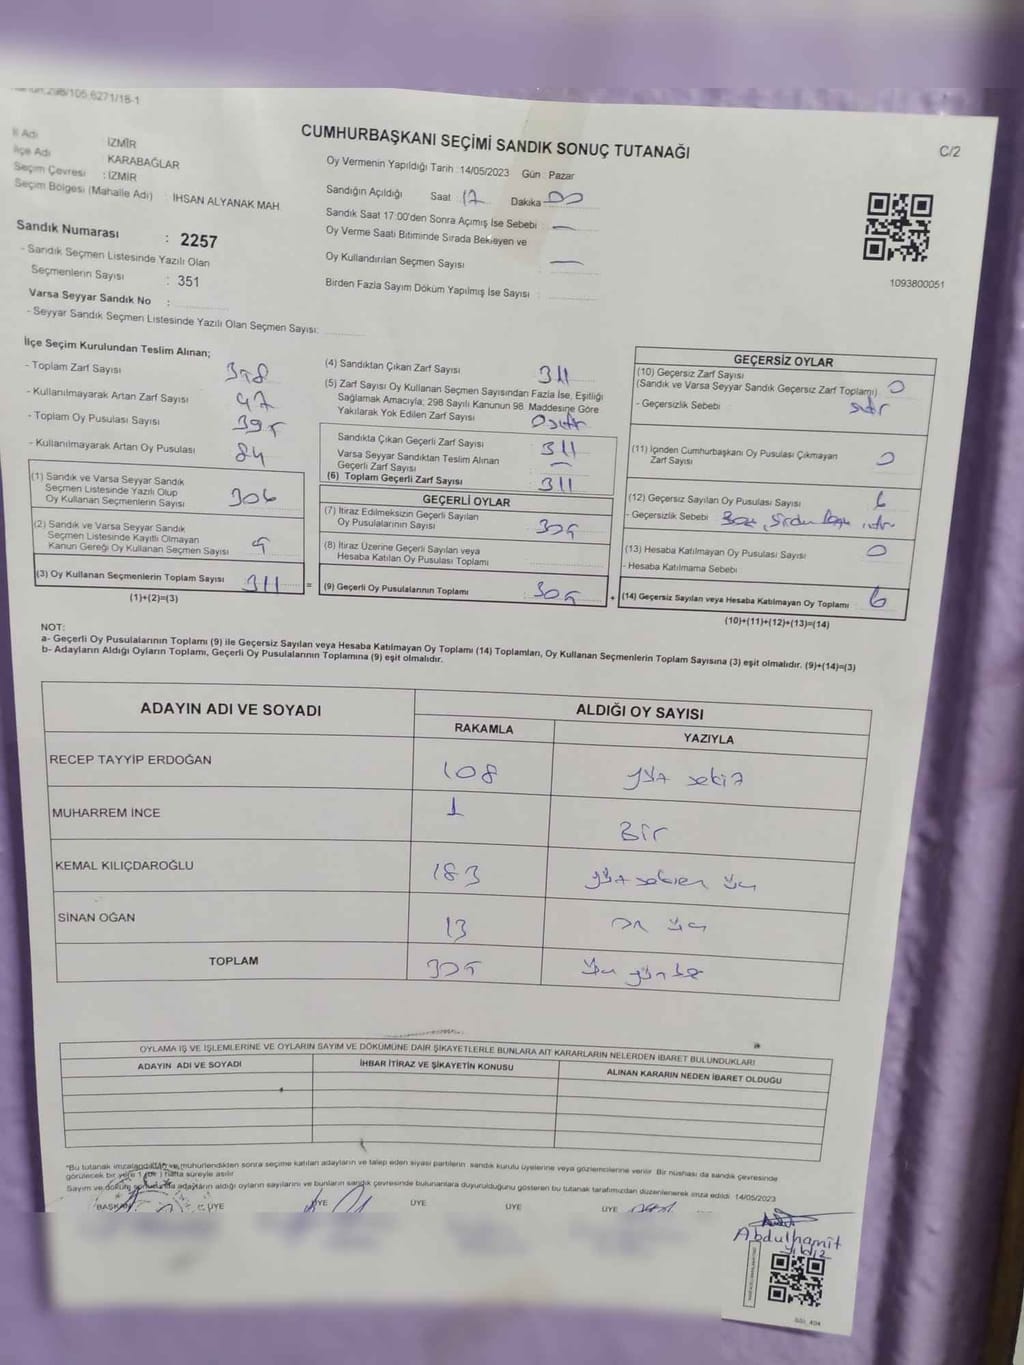 CUMHURBAŞKANI SEÇİMİ SANDIK SONUÇ TUTANAĞI
C/2
İl Adı : İZMİR
İlçe Adı : KARABAĞLAR
Seçim Çevresi : İZMİR
Seçim Bölgesi (Mahalle Adı) : İHSAN ALYANAK MAH.
Sandık Numarası : 2257
- Sandık Seçmen Listesinde Yazılı Olan
Seçmenlerin Sayısı : 351
Varsa Seyyar Sandık No :
- Seyyar Sandık Seçmen Listesinde Yazılı Olan Seçmen Sayısı:
Oy Vermenin Yapıldığı Tarih :14/05/2023 Gün : Pazar
Sandığın Açıldığı Saat 17 Dakika 00
Sandık Saat 17:00'den Sonra Açımış İse Sebebi : —
Oy Verme Saati Bitiminde Sırada Bekleyen ve
Oy Kullandırılan Seçmen Sayısı : —
Birden Fazla Sayım Döküm Yapılmış İse Sayısı :
1093800051
İlçe Seçim Kurulundan Teslim Alınan;
- Toplam Zarf Sayısı
- Kullanılmayarak Artan Zarf Sayısı 47
- Toplam Oy Pusulası Sayısı 395
- Kullanılmayarak Artan Oy Pusulası 84
(1) Sandık ve Varsa Seyyar Sandık
Seçmen Listesinde Yazılı Olup
Oy Kullanan Seçmenlerin Sayısı 306
(2) Sandık ve Varsa Seyyar Sandık
Seçmen Listesinde Kayıtlı Olmayan
Kanun Gereği Oy Kullanan Seçmen Sayısı 5
(3) Oy Kullanan Seçmenlerin Toplam Sayısı 311 =
(1)+(2)=(3)
(4) Sandıktan Çıkan Zarf Sayısı 311
(5) Zarf Sayısı Oy Kullanan Seçmen Sayısından Fazla İse, Eşitliği
Sağlamak Amacıyla; 298 Sayılı Kanunun 98. Maddesine Göre
Yakılarak Yok Edilen Zarf Sayısı 0 sıfır
Sandıkta Çıkan Geçerli Zarf Sayısı 311
Varsa Seyyar Sandıktan Teslim Alınan
Geçerli Zarf Sayısı —
(6) Toplam Geçerli Zarf Sayısı 311
GEÇERLİ OYLAR
(7) İtiraz Edilmeksizin Geçerli Sayılan
Oy Pusulalarının Sayısı 305
(8) İtiraz Üzerine Geçerli Sayılan veya
Hesaba Katılan Oy Pusulası Toplamı
(9) Geçerli Oy Pusulalarının Toplamı 305 +
GEÇERSİZ OYLAR
(10) Geçersiz Zarf Sayısı
(Sandık ve Varsa Seyyar Sandık Geçersiz Zarf Toplamı) 0
- Geçersizlik Sebebi sıfır
(11) İçinden Cumhurbaşkanı Oy Pusulası Çıkmayan
Zarf Sayısı 0
(12) Geçersiz Sayılan Oy Pusulası Sayısı 6
- Geçersizlik Sebebi
(13) Hesaba Katılmayan Oy Pusulası Sayısı 0
- Hesaba Katılmama Sebebi
(14) Geçersiz Sayılan veya Hesaba Katılmayan Oy Toplamı 6
(10)+(11)+(12)+(13)=(14)
NOT:
a- Geçerli Oy Pusulalarının Toplamı (9) ile Geçersiz Sayılan veya Hesaba Katılmayan Oy Toplamı (14) Toplamları, Oy Kullanan Seçmenlerin Toplam Sayısına (3) eşit olmalıdır. (9)+(14)=(3)
b- Adayların Aldığı Oyların Toplamı, Geçerli Oy Pusulalarının Toplamına (9) eşit olmalıdır.
ADAYIN ADI VE SOYADI
ALDIĞI OY SAYISI
RAKAMLA YAZIYLA
RECEP TAYYİP ERDOĞAN 108 yüz sekiz
MUHARREM İNCE 1 Bir
KEMAL KILIÇDAROĞLU 183 yüz seksen üç
SİNAN OĞAN 13 on üç
TOPLAM 305 üç yüz beş
OYLAMA İŞ VE İŞLEMLERİNE VE OYLARIN SAYIM VE DÖKÜMÜNE DAİR ŞİKAYETLERLE BUNLARA AİT KARARLARIN NELERDEN İBARET BULUNDUKLARI
ADAYIN ADI VE SOYADI İHBAR İTİRAZ VE ŞİKAYETİN KONUSU ALINAN KARARIN NEDEN İBARET OLDUĞU
*Bu tutanak imzalandıktan ve mühürlendikten sonra seçime katılan adayların ve talep eden siyasi partilerin sandık kurulu üyelerine veya gözlemcilerine verilir. Bir nüshası da sandık çevresinde
görülecek bir yere 1 hafta süreyle asılır.
Sayım ve döküm sonucunda adayların aldığı oyların sayılarını ve bunların sandık çevresinde bulunanlara duyurulduğunu gösteren bu tutanak tarafımızdan düzenlenerek imza edildi. 14/05/2023
BAŞKAN ÜYE ÜYE ÜYE ÜYE ÜYE
Abdulhamit
yıldız